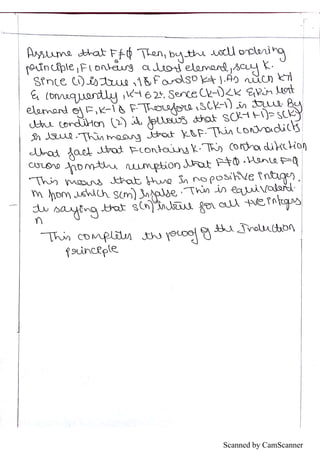 Assume that F≠φ Then, by the well ordering
principle, F contains a least element, say k.
Since (1) is true, 1∉F and so k≠1. As such k>1
& consequently, k-1 ∈ Z+. Since (k-1)<k & k is least
element of F, k-1 ∉ F Therefore, S(k-1) is true By
the condition (2) it follows that S(k-1+1)=S(k)
is true. This means that k∉F. This contradicts
that fact that F contains k. This contradiction
comes from the assumption that F≠φ. Hence F=φ
This means that there is no positive integer,
m for which S(m) is false. This is equivalent
to saying that S(n) is true for all +ve integers
n
This completes the proof of the Induction
principle
Scanned by CamScanner